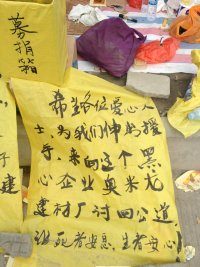 募捐箱
希望各位爱心人
士,为我们伸出援
手,来向这个黑
心企业奥米
建材厂讨回公道
让死者安息,生者安心!
建